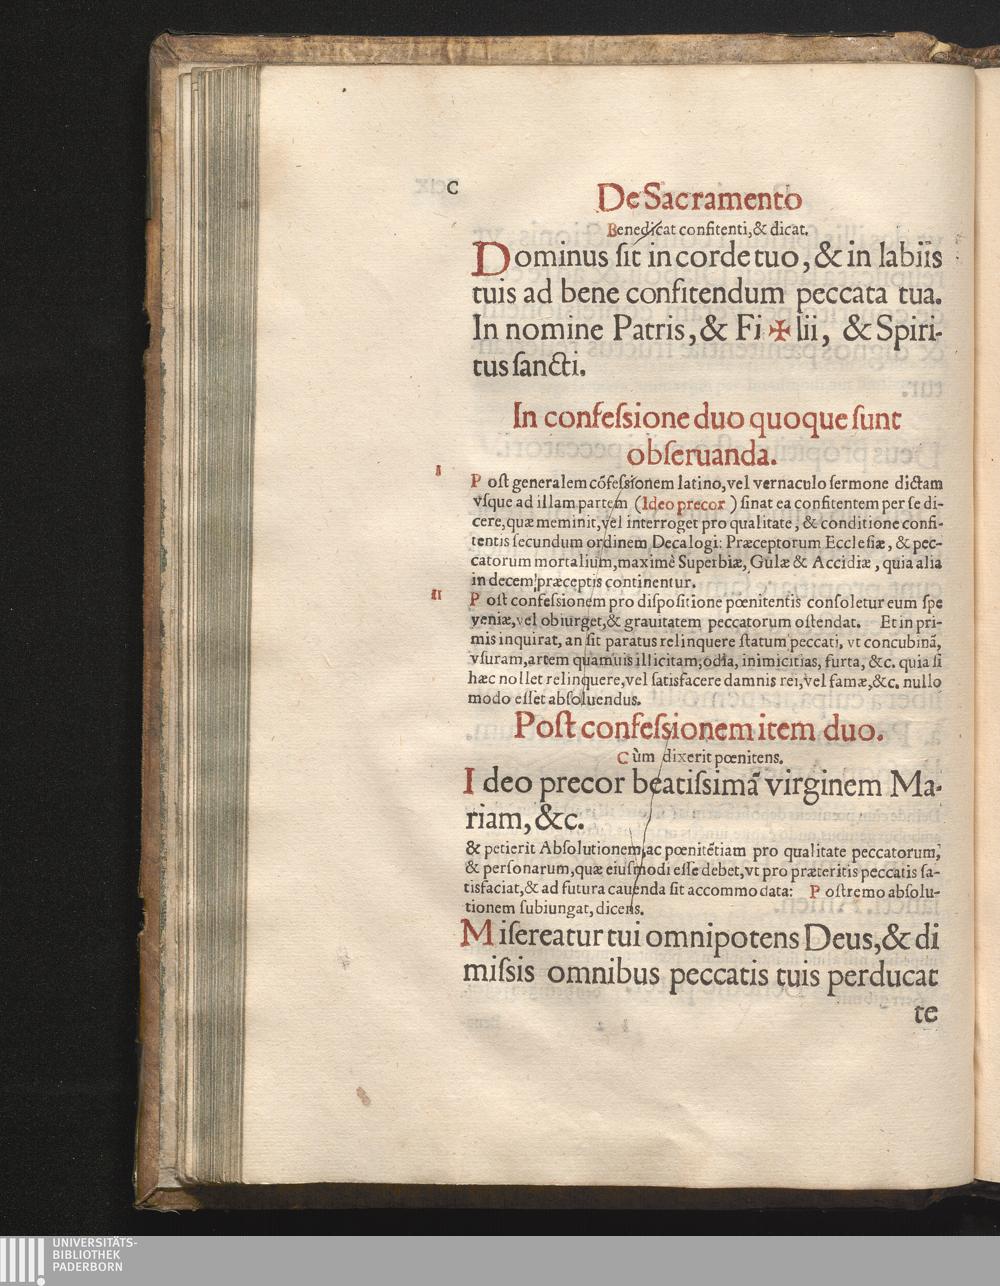 C
De Sacramento
Benedicat confitenti, & dicat.
Dominus ſit in corde tuo, & in labiis
tuis ad bene confitendum peccata tua.
In nomine Patris, & Fi ✠ lii, & Spiri-
tus ſancti.
In confeſsione duo quoque ſunt
obſeruanda.
I
Poſt generalem cõfeſsionem latino, vel vernaculo ſermone dictam
vſque ad illam partem (Ideo precor) ſinat ea confitentem per ſe di-
cere, quæ meminit, vel interroget pro qualitate, & conditione confi-
tentis ſecundum ordinem Decalogi: Præceptorum Eccleſiæ, & pec-
catorum mortalium, maximè Superbiæ, Gulæ & Accidiæ, quia alia
in decem præceptis continentur.
II
Poſt confeſsionem pro diſpoſitione pœnitentis conſoletur eum ſpe
veniæ, vel obiurget, & grauitatem peccatorum oſtendat. Et in pri-
mis inquirat, an ſit paratus relinquere ſtatum peccati, vt concubinã,
vſuram, artem quamuis illicitam, odia, inimicitias, furta, &c. quia ſi
hæc nollet relinquere, vel ſatisfacere damnis rei, vel famæ, &c. nullo
modo eſſet abſoluendus.
Poſt confeſsionem item duo.
Cùm dixerit pœnitens.
Ideo precor beatiſsimã virginem Ma-
riam, &c.
& petierit Abſolutionem, ac pœnitẽtiam pro qualitate peccatorum,
& perſonarum, quæ eiuſmodi eſſe debet, vt pro præteritis peccatis ſa-
tisfaciat, & ad futura cauenda ſit accommodata: Poſtremo abſolu-
tionem ſubiungat, dicens.
Miſereatur tui omnipotens Deus, & di
miſsis omnibus peccatis tuis perducat
te
UNIVERSITÄTS-
BIBLIOTHEK
PADERBORN